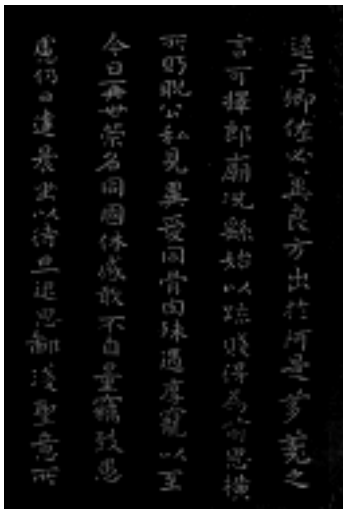 逮于卿佐必冀良方出於阿是芻蕘之
言可擇郎廟況繇始以疏賤得為前恩橫
所眄睨公私見異愛同骨肉殊遇厚寵以至
今日再世榮名同國休慼敢不自量竊致愚
慮仍日達晨坐以待旦退思鄙淺聖意所